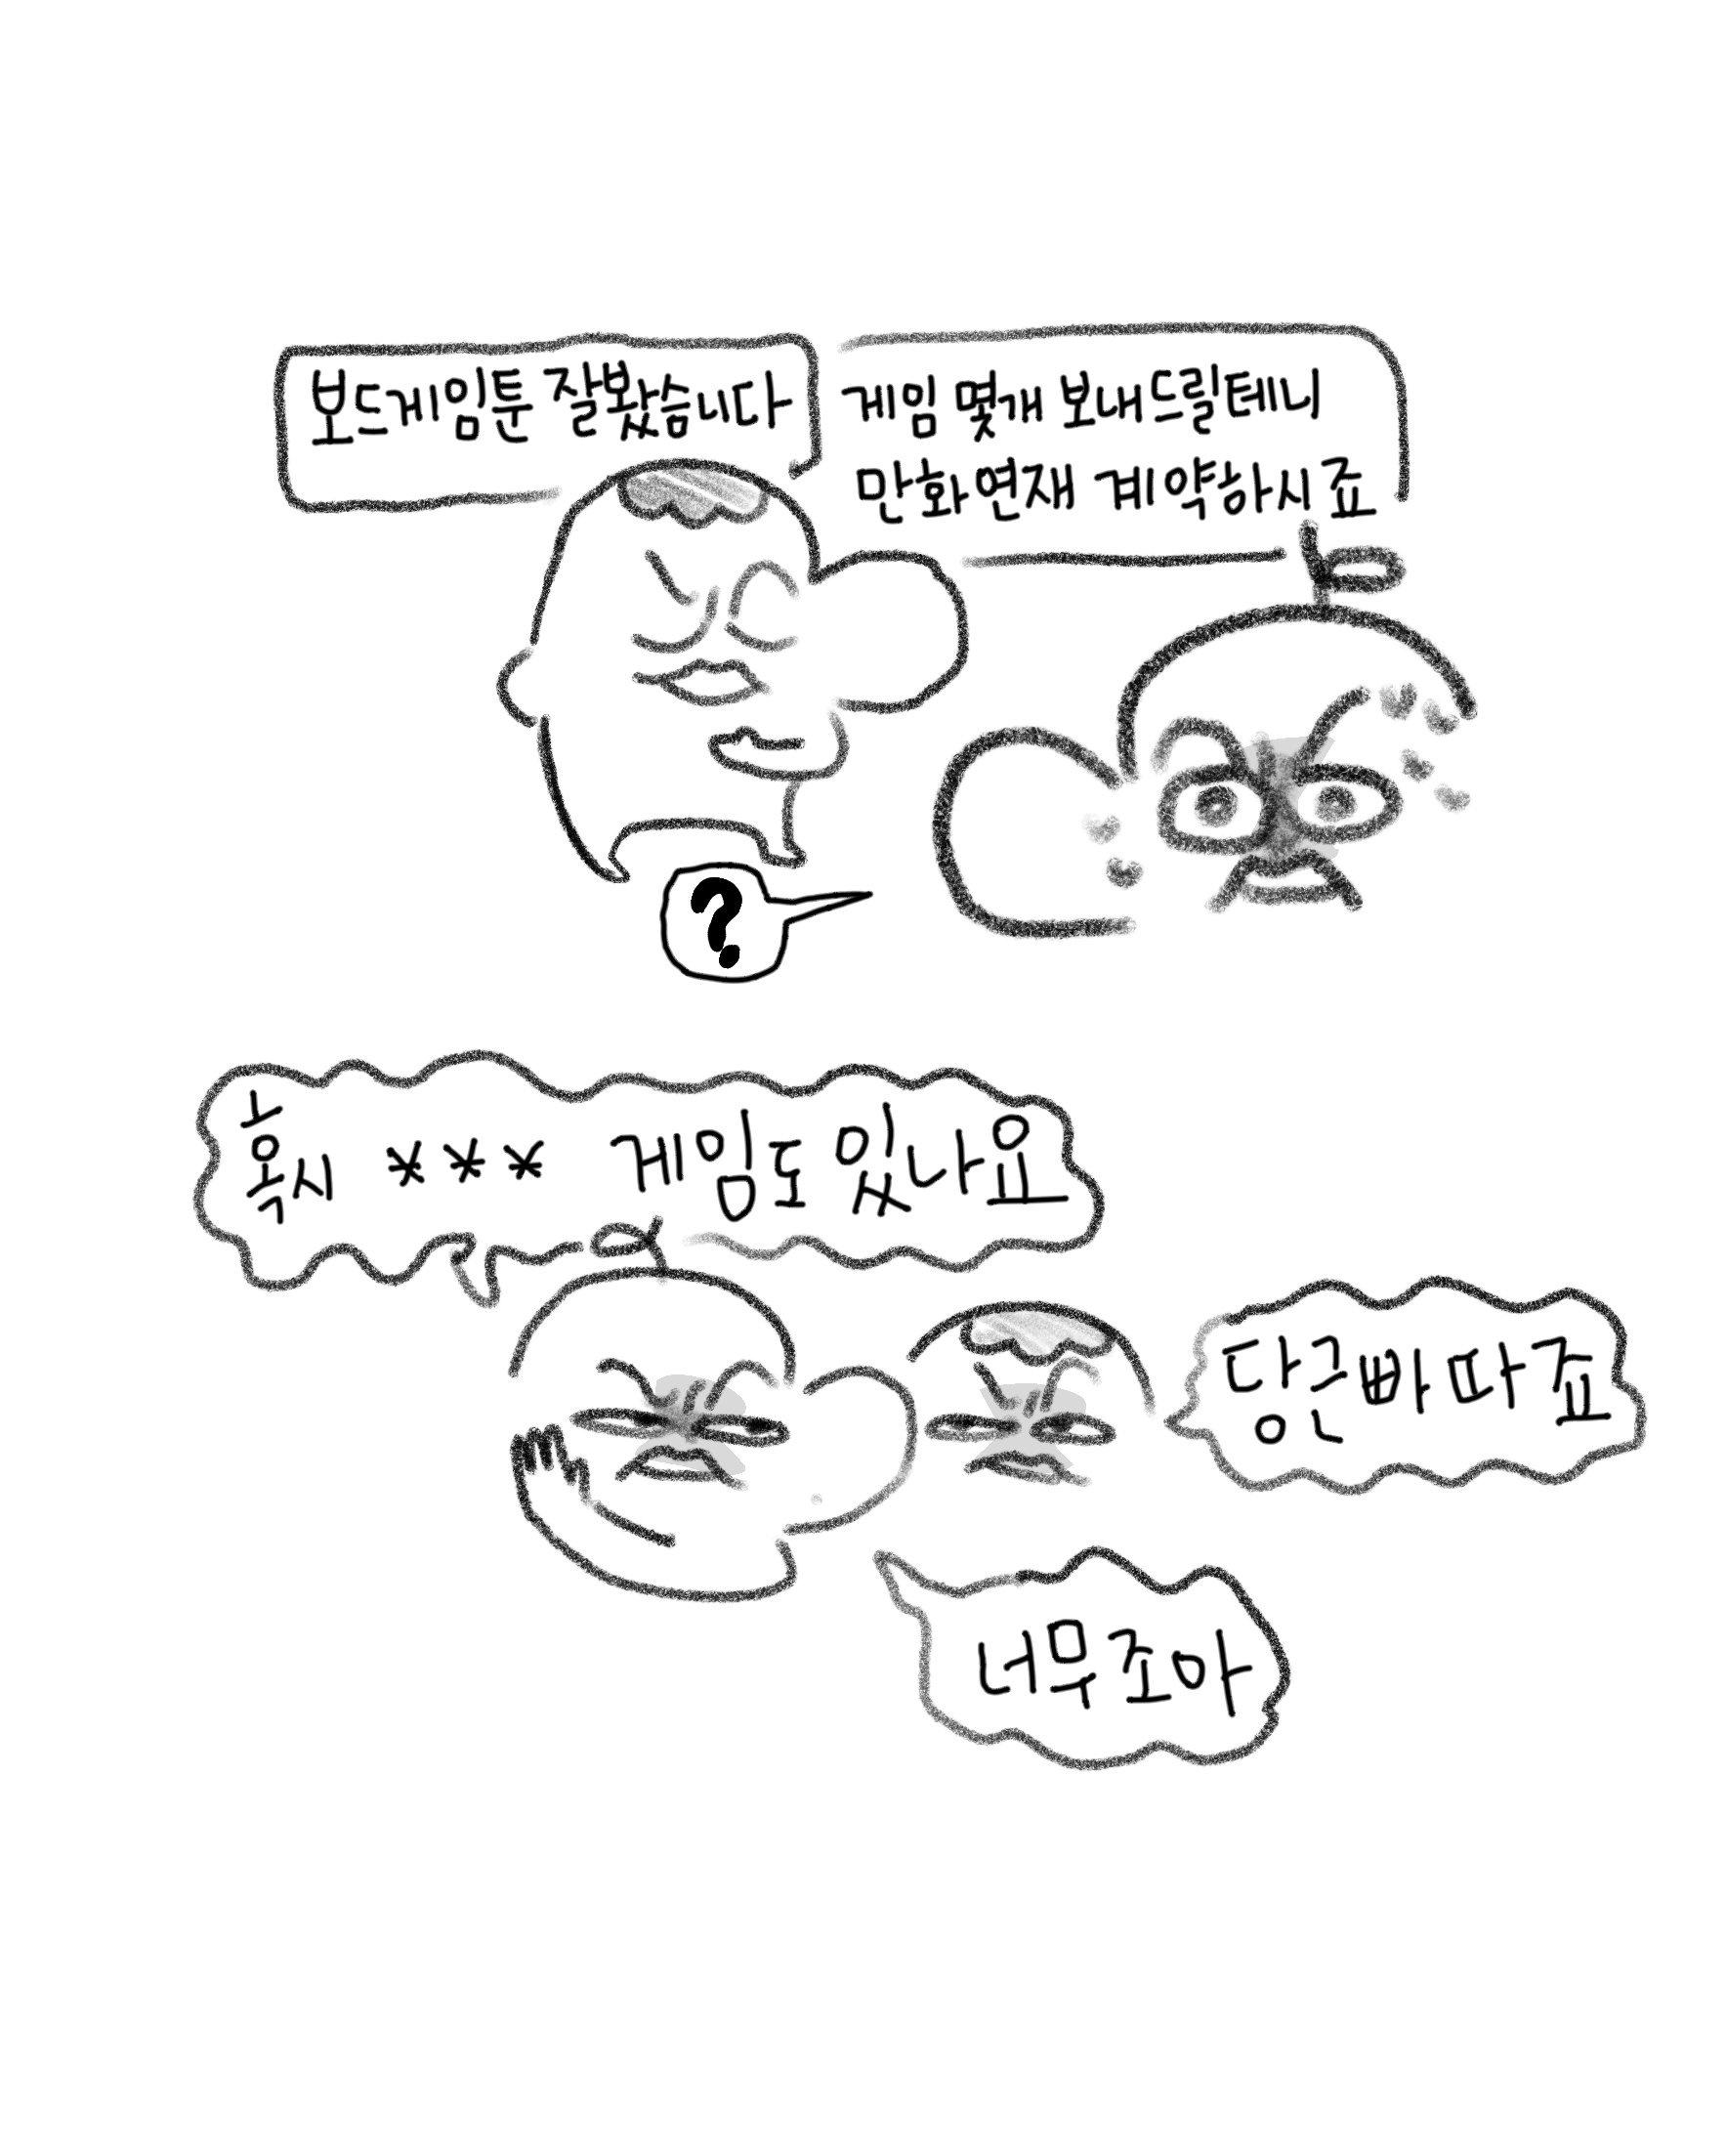 보드게임툰 잘봤습니다
게임 몇개 보내드릴테니
만화연재 계약하시죠
?
혹시 *** 게임도 있나요
당근빠따죠
너무조아